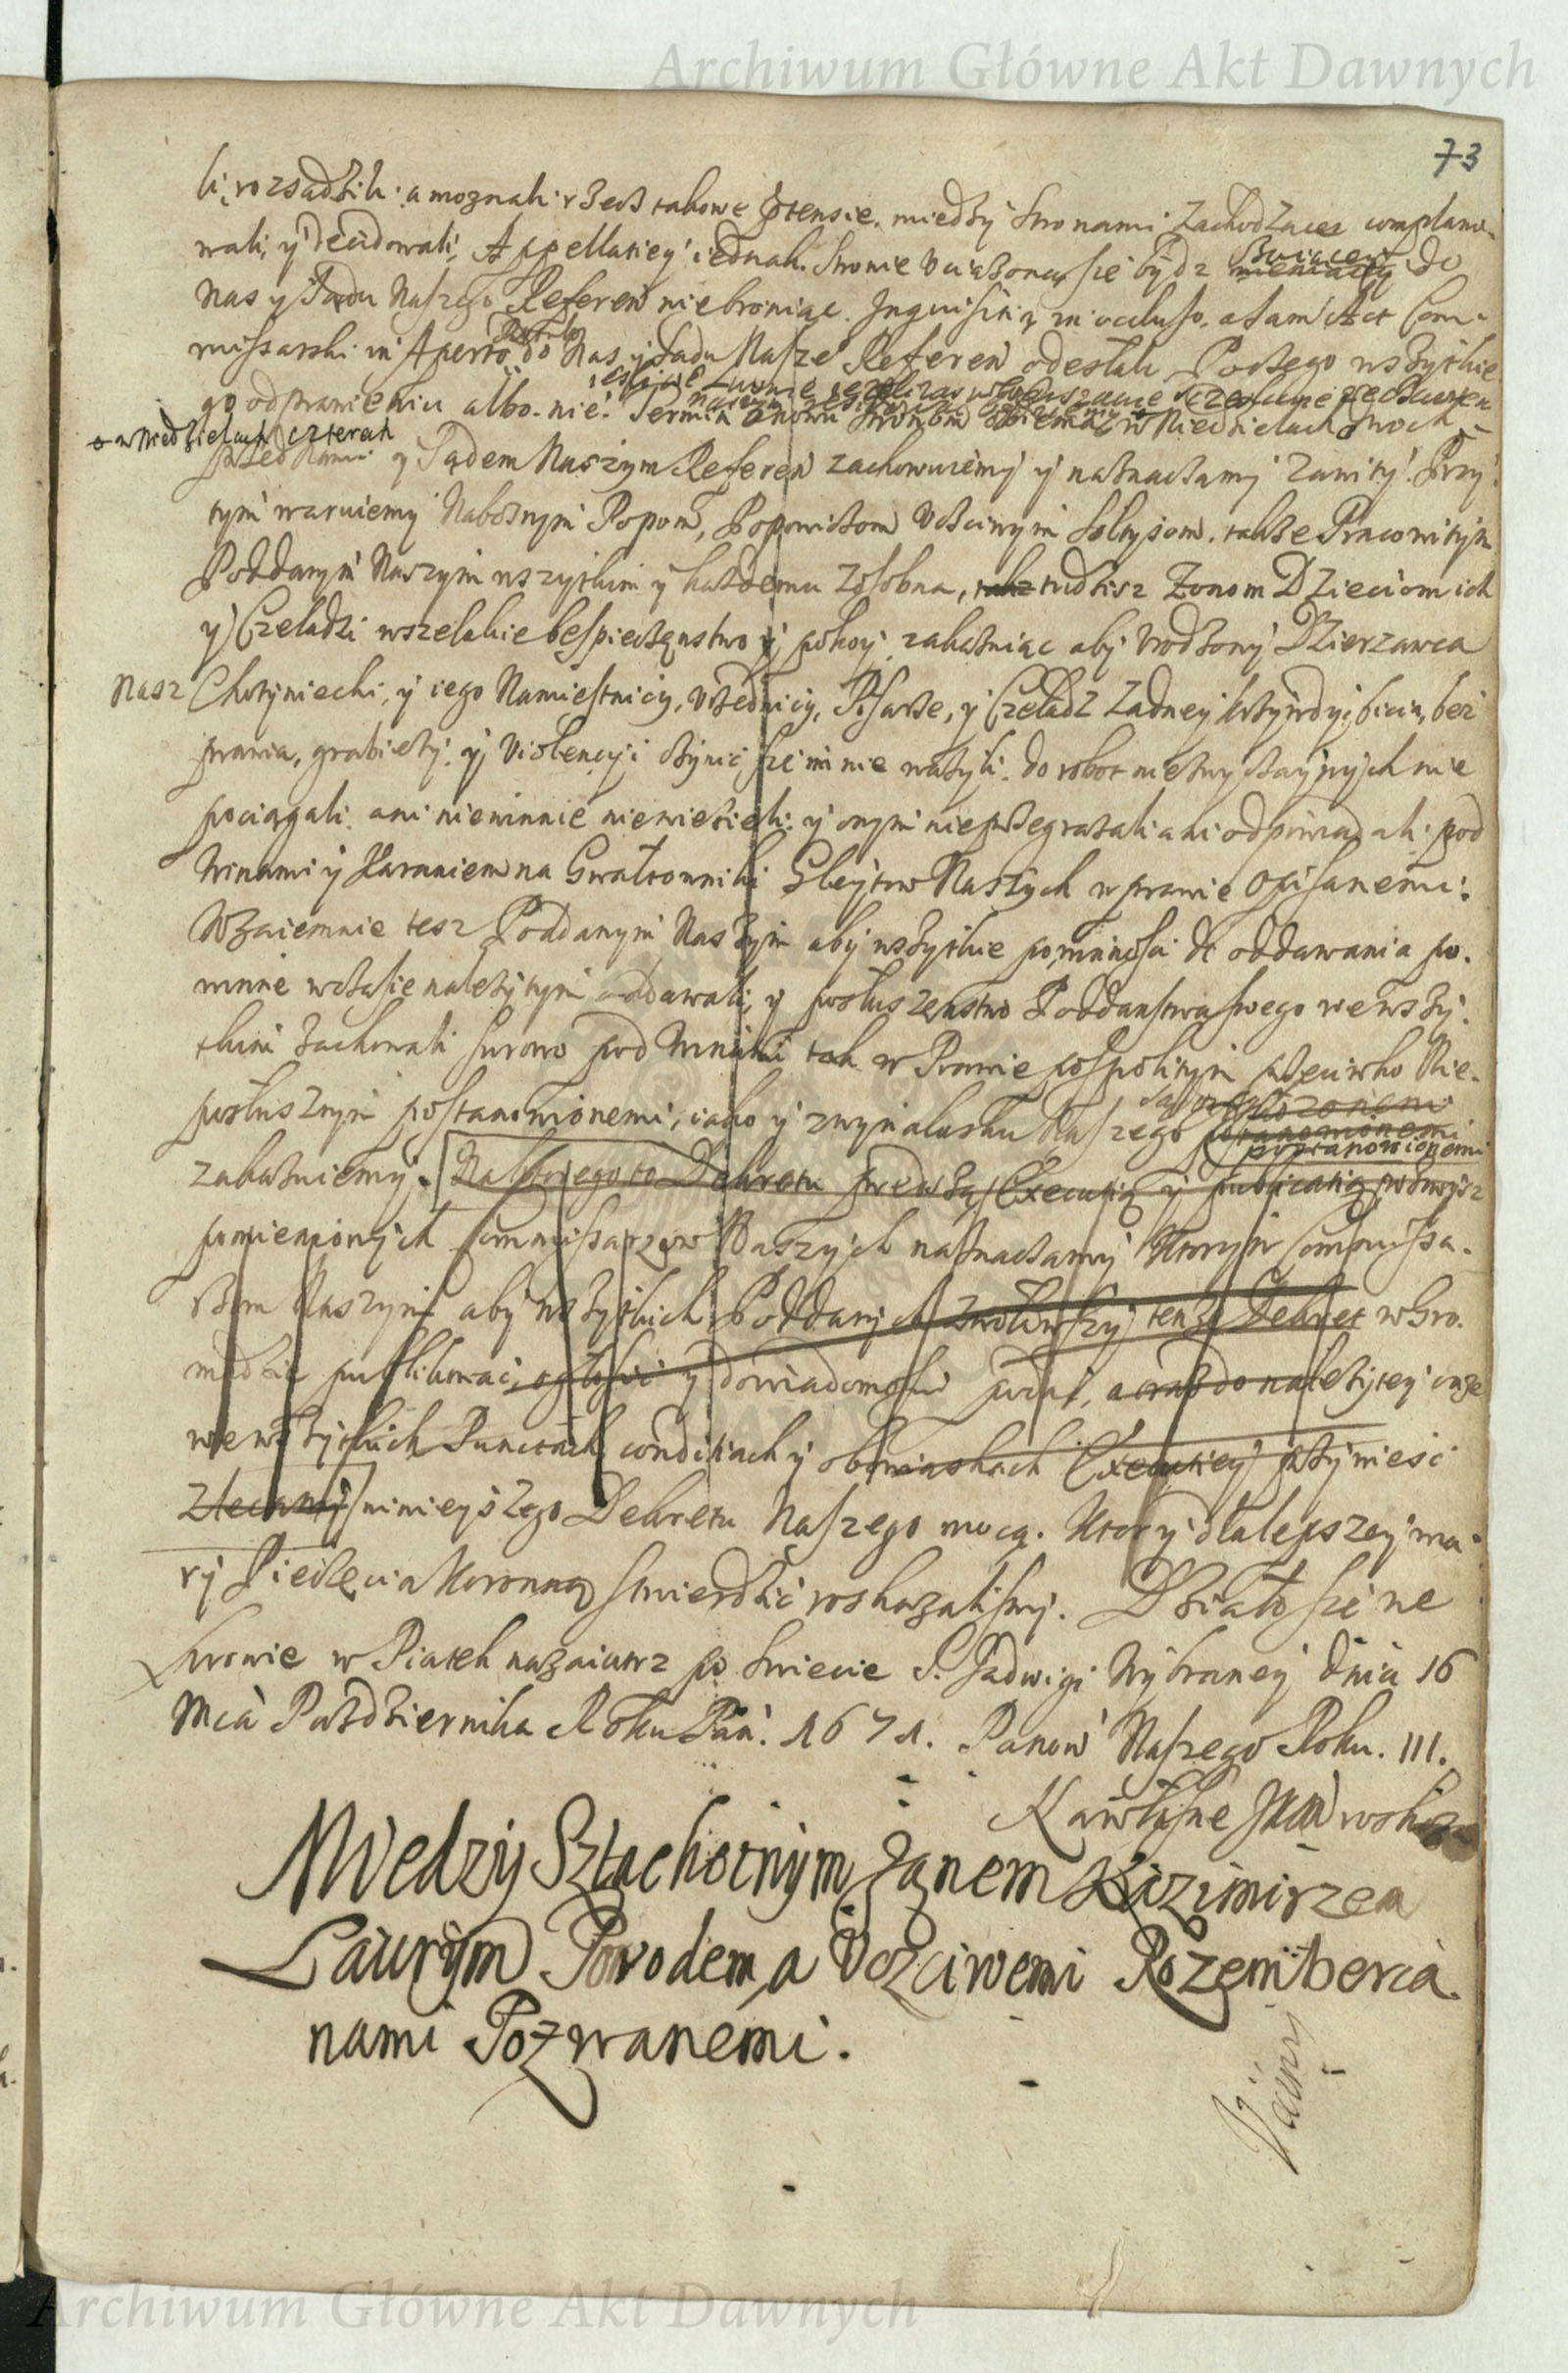 Archiwum Główne Akt Dawnych
73
li, rozsądzili: a moznali rzecz takowe ptensie. miedzy Stronami zachodzące complano-
wali, y decidowali, Appellatiey iednak. Stronie uciążoney się bydz do
Nas y Sądu Naszego Referen nie broniąc. Inquisitią in occluso. a sam Act Com-
missarski in Aperto do Nas y Sądu Nasze Referen odesłali. Po tego wszytkie
go odprawieniu albo. nie. Termin znowu Stronom obiema w Niedzielach dwoch
w Niedzielach czterech
przed Nami y Sądem Naszym Referen zachowuiemy y naznaczamy zawity. Przy
tym waruiemy Naboznym Popom, Popowiczom Uczciwym Sołtysom. takze Pracowitym
Poddanym Naszym wszytkim y kazdemu zosobna, tudziesz Zonom Dzieciom ich
y Czeladzi wszelakie bespieczenstwo y pokoy zakazuiąc aby Urodzony Dzierzawca
Nasz Chotyniecki, y iego Namiestnicy, Urzędnicy, Pisarze, y Czeladz zadney krzywdy, bicia, bez
prawia, grabiezy. y Violencyi czynić się im nie wazyli. do robot niezwyczaynych nie
pociągali. ani niewinnie niewięzieli: y onym nieprzegrazali ani odpowiadali: pod
Winami y Karaniem na Gwałtowniki Gleytow Naszych w prawie opisanemi:
Wzaiemnie tesz Poddanym Naszym aby wszytkie powinności do oddawania po-
winne w czasie nalezytym oddawali, y posłuszenstwo Poddanstwa swego we wszy-
tkim zachowali surowo pod Winami tak w Prawie pospolitym przeciwko Nie-
posłusznym postanowionemi, iako y z wynalasku Naszego postanowionemi
zakazuiemy. Na ktorego to Dekretu prewszą Executią y publicatią pod wysz
pomienionych Commissarzow Naszych naznaczamy Ktorym Commissa-
rzom Naszym aby wszytkich Poddanych zwoławszy tenze Dekret w Gro-
madzie publikować, ogłosić y do wiadomosci podać, a oraz do nalezytey onze
we wszytkich Punctach conditiach y obowiaskach Executiey przywieść
zlecamy ninieyszego Dekretu Naszego mocą. Ktory dla lepszey wia-
ry Pieczęcią Koronną stwierdzić roskazalismy. Działo się we
Lwowie w Piatek nazaiutrz po swiecie S. Jadwigi Wybraney dnia 16
Mca Pazdziernika Roku Pan. 1671. Panow Naszego Roku. III.
Miedzy Szlachetnym Janem Kazimirzem
Laurym Powodem, a Uczciwemi Rozembercia-
nami Pozwanemi.
Archiwum Główne Akt Dawnych